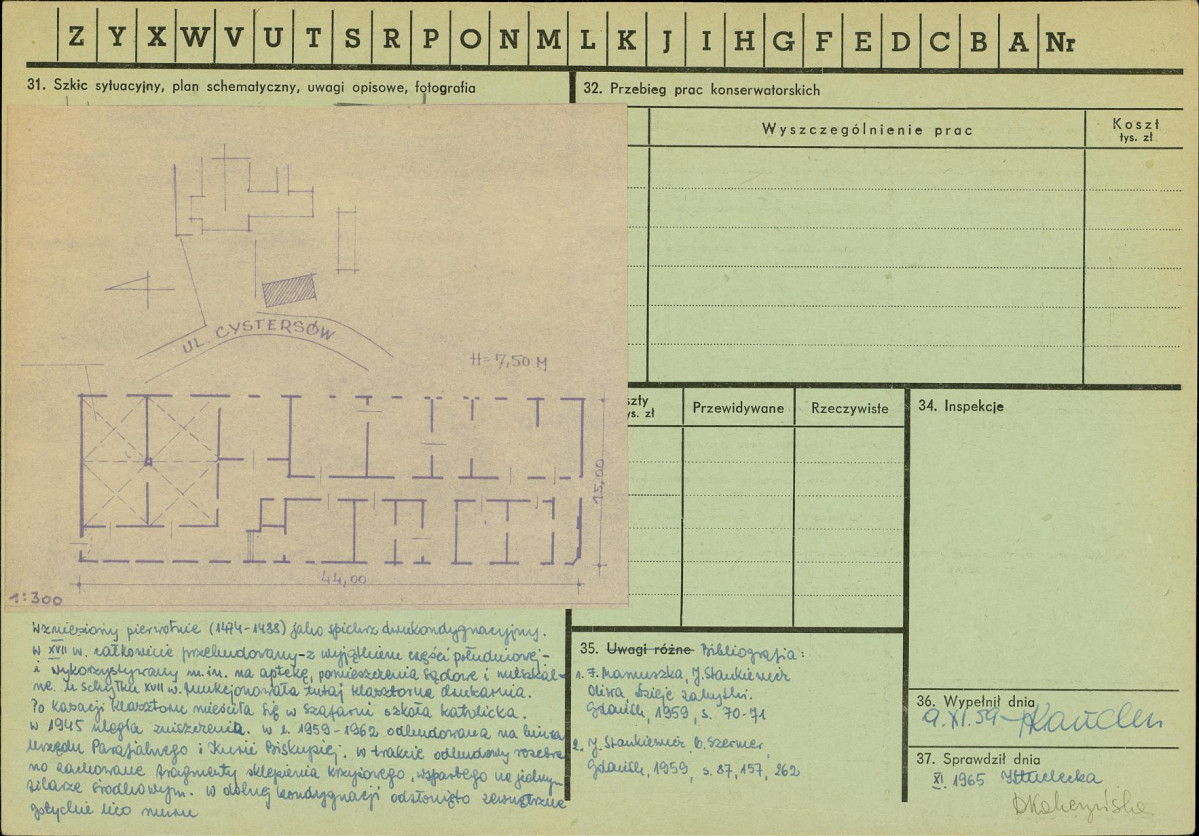 Z Y X W V U T S R P O N M L K J I H G F E D C B A Nr
31. Szkic sytuacyjny, plan schematyczny, uwagi opisowe, fotografia
UL. CYSTERSÓW
H=7,50 M
15,00
44,00
1:300
Wzniesiony pierwotnie (1474-1488) jako spichrz dwukondygnacyjny.
w XVII w. całkowicie przebudowany - z wyjątkiem części południowej -
i wykorzystywany m.in. na aptekę, pomieszczenia sądowe i mieszkal-
ne. U schyłku XVII w. funkcjonowała tutaj klasztorna drukarnia.
Po kasacji klasztoru mieściła się w szafarni szkoła katolicka.
w 1945 uległa zniszczeniu. w l. 1959-1962 odbudowana na biura
Urzędu Parafialnego i Kurii Biskupiej. w trakcie odbudowy rozebra-
no zachowane fragmenty sklepienia krzyżowego, wspartego na jednym
filarze środkowym. W dolnej kondygnacji odsłonięto zewnętrzne
gotyckie lico muru
32. Przebieg prac konserwatorskich
Wyszczególnienie prac
Koszt
tys. zł
szty
ys. zł
Przewidywane
Rzeczywiste
34. Inspekcje
35. Uwagi różne Bibliografia:
1. F. Mamuszka, J. Stankiewicz
Oliwa Dzieje zabytki.
Gdańsk, 1959, s. 70-71
2. J. Stankiewicz B. Szermer,
Gdańsk, 1959, s. 87, 157, 262
36. Wypełnił dnia
9.XI.59
37. Sprawdził dnia
XI. 1965